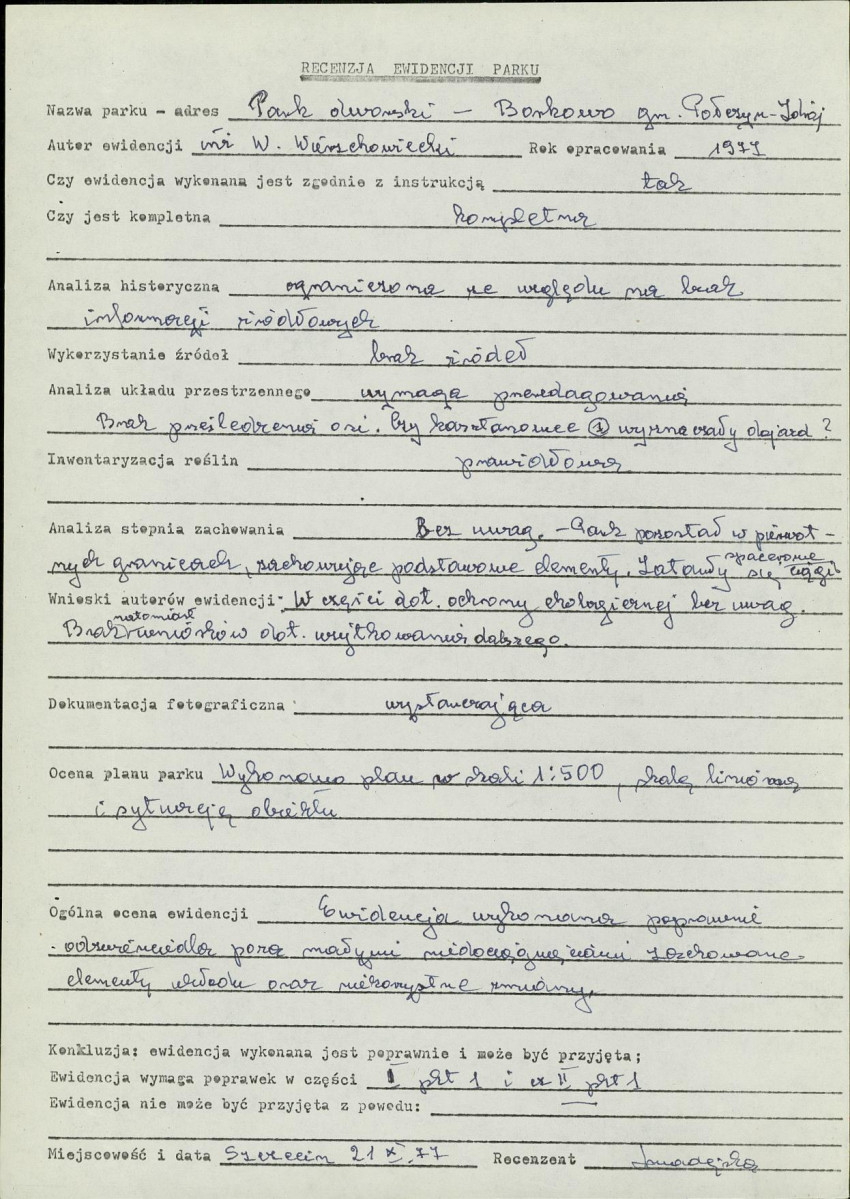 RECENZJA EWIDENCJI PARKU
Nazwa parku - adres Park dworski - Borkowo gm. Połczyn-Zdrój
Autor ewidencji inż W. Wierzchowiecki Rok opracowania 1977
Czy ewidencja wykonana jest zgodnie z instrukcją tak
Czy jest kompletna kompletna
Analiza historyczna ograniczona ze względu na brak
informacji źródłowych
Wykorzystanie źródeł brak źródeł
Analiza układu przestrzennego wymaga przedagowania
Brak prześledzenia osi. Czy kasztanowce ① wyznaczały dojazd?
Inwentaryzacja roślin prawidłowa
Analiza stopnia zachowania Bez uwag. - Park pozostał w pierwot-
nych granicach, zachowując podstawowe elementy. Zatarły się spacerowe ciągi
Wnioski autorów ewidencji: W części dot. ochrony ekologicznej bez uwag.
Brak natomiast wniosków dot. użytkowania dalszego.
Dokumentacja fotograficzna: wystarczająca
Ocena planu parku Wykonano plan w skali 1:500, skalą liniową
i sytuacją obiektu
Ogólna ocena ewidencji Ewidencja wykonana poprawnie
odzwierciedla poza małymi niedociągnięciami zachowane
elementy układu oraz niekorzystne zmiany.
Konkluzja: ewidencja wykonana jest poprawnie i może być przyjęta;
Ewidencja wymaga poprawek w części I pkt 1 i cz II pkt 1
Ewidencja nie może być przyjęta z powodu:
Miejscowość i data Szczecin 21 XI 77 Recenzent